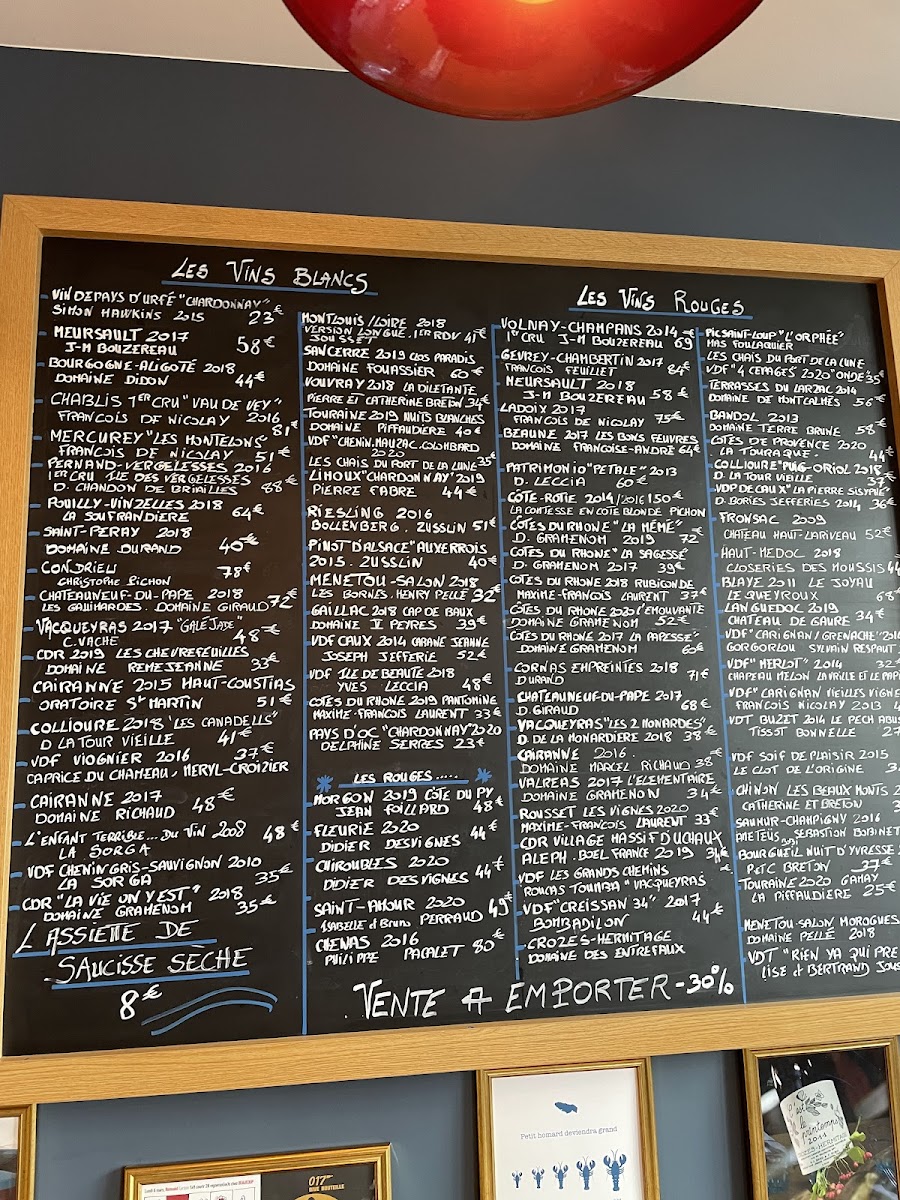 LES VINS BLANCS
VIN DE PAYS D'URFÉ "CHARDONNAY"
SIMON HAWKINS 2015 23€
MEURSAULT 2017
J-M BOUZEREAU 58€
BOURGOGNE-ALIGOTÉ 2018
DOMAINE DIDON 44€
CHABLIS 1ER CRU "VAU DE VEY"
FRANCOIS DE NICOLAY 2016 81€
MERCUREY "LES MONTELONS"
FRANÇOIS DE NICOLAY 51€
PERNAND-VERGELESSES 2016
1ER CRU ILE DES VERGELESSES
D. CHANDON DE BRIAILLES 88€
POUILLY-VINZELLES 2018
LA SOUFRANDIERE 64€
SAINT-PERAY 2018
DOMAINE DURAND 40€
CONDRIEU 78€
CHRISTOPHE PICHON
CHATEAUNEUF-DU-PAPE 2018
LES GALIMARDES. DOMAINE GIRAUD 72€
VACQUEYRAS 2017 "GALEJADE"
C. VACHE 48€
CDR 2019 LES CHEVREFEUILLES
DOMAINE REMEJEANNE 33€
CAIRANNE 2015 HAUT-COUSTIAS
ORATOIRE ST MARTIN 51€
COLLIOURE 2018 'LES CANADELLS"
D LA TOUR VIEILLE 41€
VDF VIOGNIER 2016 37€
CAPRICE DU CHAMEAU, MERYL-CROIZIER
CAIRANNE 2017
DOMAINE RICHAUD 48€
L'ENFANT TERRIBLE... DU VIN 2008 48€
LA SORGA
VDF CHENIN GRIS-SAUVIGNON 2010
LA SORGA 35€
CDR "LA VIE ON Y EST" 2018
DOMAINE GRAMENOM 35€
L'ASSIETTE DE
SAUCISSE SÈCHE
8€
MONTLOUIS/LOIRE 2018
VERSION LONGUE. 1ER RDV 41€
JOUSSET
SANCERRE 2019 CLOS PARADIS
DOMAINE FOUASSIER 60€
VOUVRAY 2018 LA DILETANTE
PIERRE ET CATHERINE BRETON 34€
TOURAINE 2019 NUITS BLANCHES
DOMAINE PIFFAUDIERE 40€
VDF "CHENIN.MAUZAC.COLOMBARD
2020
LES CHAIS DU PORT DE LA LUNE 35€
LIMOUX "CHARDONNAY" 2019
PIERRE FABRE 44€
RIESLING 2016
BOLLENBERG. ZUSSLIN 51€
PINOT D'ALSACE "AUXERROIS
2015. ZUSSLIN 40€
MENETOU-SALON 2018
LES BORNES. HENRY PELLÉ 32€
GAILLAC 2018 CAP DE BAUX
DOMAINE LE PEYRES 39€
VDF CAUX 2014 CARANE JEANNE
JOSEPH JEFFERIE 52€
VDF ILE DE BEAUTÉ 2018
YVES LECCIA 48€
COTES DU RHONE 2019 PANTOMINE
MAXIME-FRANCOIS LAURENT 33€
PAYS D'OC "CHARDONNAY" 2020
DELPHINE SERRES 23€
LES ROUGES.....
MORGON 2019 CÔTE DU PY
JEAN FOILLARD 48€
FLEURIE 2020
DIDIER DESVIGNES 44€
CHIROUBLES 2020
DIDIER DESVIGNES 44€
SAINT-AMOUR 2020
ISABELLE & Bruno PERRAUD 49€
CHENAS 2016
PHILIPPE PACALET 80€
LES VINS ROUGES
VOLNAY-CHAMPANS 2014
1ER CRU J-M BOUZEREAU 69€
GEVREY-CHAMBERTIN 2017
FRANÇOIS FEUILLET 84€
MEURSAULT 2018
J-M BOUZEREAU 58€
LADOIX 2017
FRANÇOIS DE NICOLAY 75€
BEAUNE 2017 LES BONS FEUVRES
DOMAINE FRANCOISE-ANDRÉ 64€
PATRIMONIO "PETALE" 2013
D. LECCIA 60€
CÔTE-ROTIE 2014/2016 150€
LA COMTESSE EN COTE BLONDE PICHON
COTES DU RHONE "LA MÉMÉ"
D. GRAMENOM 2019 72€
COTES DU RHONE "LA SAGESSE"
D. GRAMENOM 2017 39€
COTES DU RHONE 2018 RUBICONDE
MAXIME-FRANÇOIS LAURENT 37€
CÔTES DU RHONE 2020 L'EMOUVANTE
DOMAINE GRAMENOM 52€
COTES DU RHONE 2017 LA PAPESSE"
DOMAINE GRAMENOM 60€
CORNAS EMPREINTES 2018
DURAND 71€
CHATEAUNEUF-DU-PAPE 2017
D. GIRAUD 68€
VACQUEYRAS "LES 2 MONARDES"
D. DE LA MONARDIERE 2018 38€
CAIRANNE 2016
DOMAINE MARCEL RICHAUD 38€
VALREAS 2017 L'ELEMENTAIRE
DOMAINE GRAMENON 34€
ROUSSET LES VIGNES 2020
MAXIME-FRANCOIS LAURENT 33€
CDR VILLAGE MASSIF D'UCHAUX
ALEPH. BOEL FRANCE 2019 34€
VDF LES GRANDS CHEMINS
ROUCAS TOUMBA "VACQUEYRAS"
VDF "CREISSAN 34" 2017
BOMBADILON 44€
CROZES-HERMITAGE
DOMAINE DES ENTREFAUX
PIC SAINT-LOUP "L'ORPHÉE"
MAS FOULAQUIER
LES CHAIS DU PORT DE LA LUNE
VDF "4 CEPAGES 2020" ONDE 35€
TERRASSES DU LARZAC 2014
DOMAINE DE MONTCALMÉS 56€
BANDOL 2013
DOMAINE TERRE BRUNE 58€
COTES DE PROVENCE 2020
LA TOURAQUE 44€
COLLIOURE "PUIG-ORIOL 2018
D. LA TOUR VIEILLE 37€
VDP DE CAUX "LA PIERRE SISYPHE"
D. BORIES JEFFERIES 2014 36€
FRONSAC 2009
CHATEAU HAUT-LARIVEAU 52€
HAUT-MEDOC 2018
CLOSERIES DES MOUSSIS 44
BLAYE 2011 LE JOYAU
LE QUEYROUX 68€
LANGUEDOC 2019
CHATEAU DE GAURE 34€
VDF "CARIGNAN/GRENACHE" 201
GORGORLOU SYLVAIN RESPAUT
VDF "MERLOT" 2014 32€
CHAPEAU MELON
VDF "CARIGNAN VIEILLES VIGNE
FRANÇOIS NICOLAY 2013 4
VDT BUZET 2014 LE PECH ABUS
TISSOT BONNELLE 27
VDF SOIF DE PLAISIR 2015
LE CLOT DE L'ORIGINE 3
CHINON LES BEAUX MONTS 2
CATHERINE ET BRETON 3
SAUMUR-CHAMPIGNY 2016
SEBASTIEN BOBINET
BOURGUEIL NUIT D'YVRESSE
P & C BRETON 27€
TOURAINE 2020 GAMAY
LA PIFFAUDIÈRE 25€
MENETOU-SALON MOROGUES
DOMAINE PELLÉ 2018
VDT "RIEN YA QUI PRE
LISE & BERTRAND JOUS
VENTE A EMPORTER -30%
Petit homard deviendra grand
C'est le printemps
2011
017